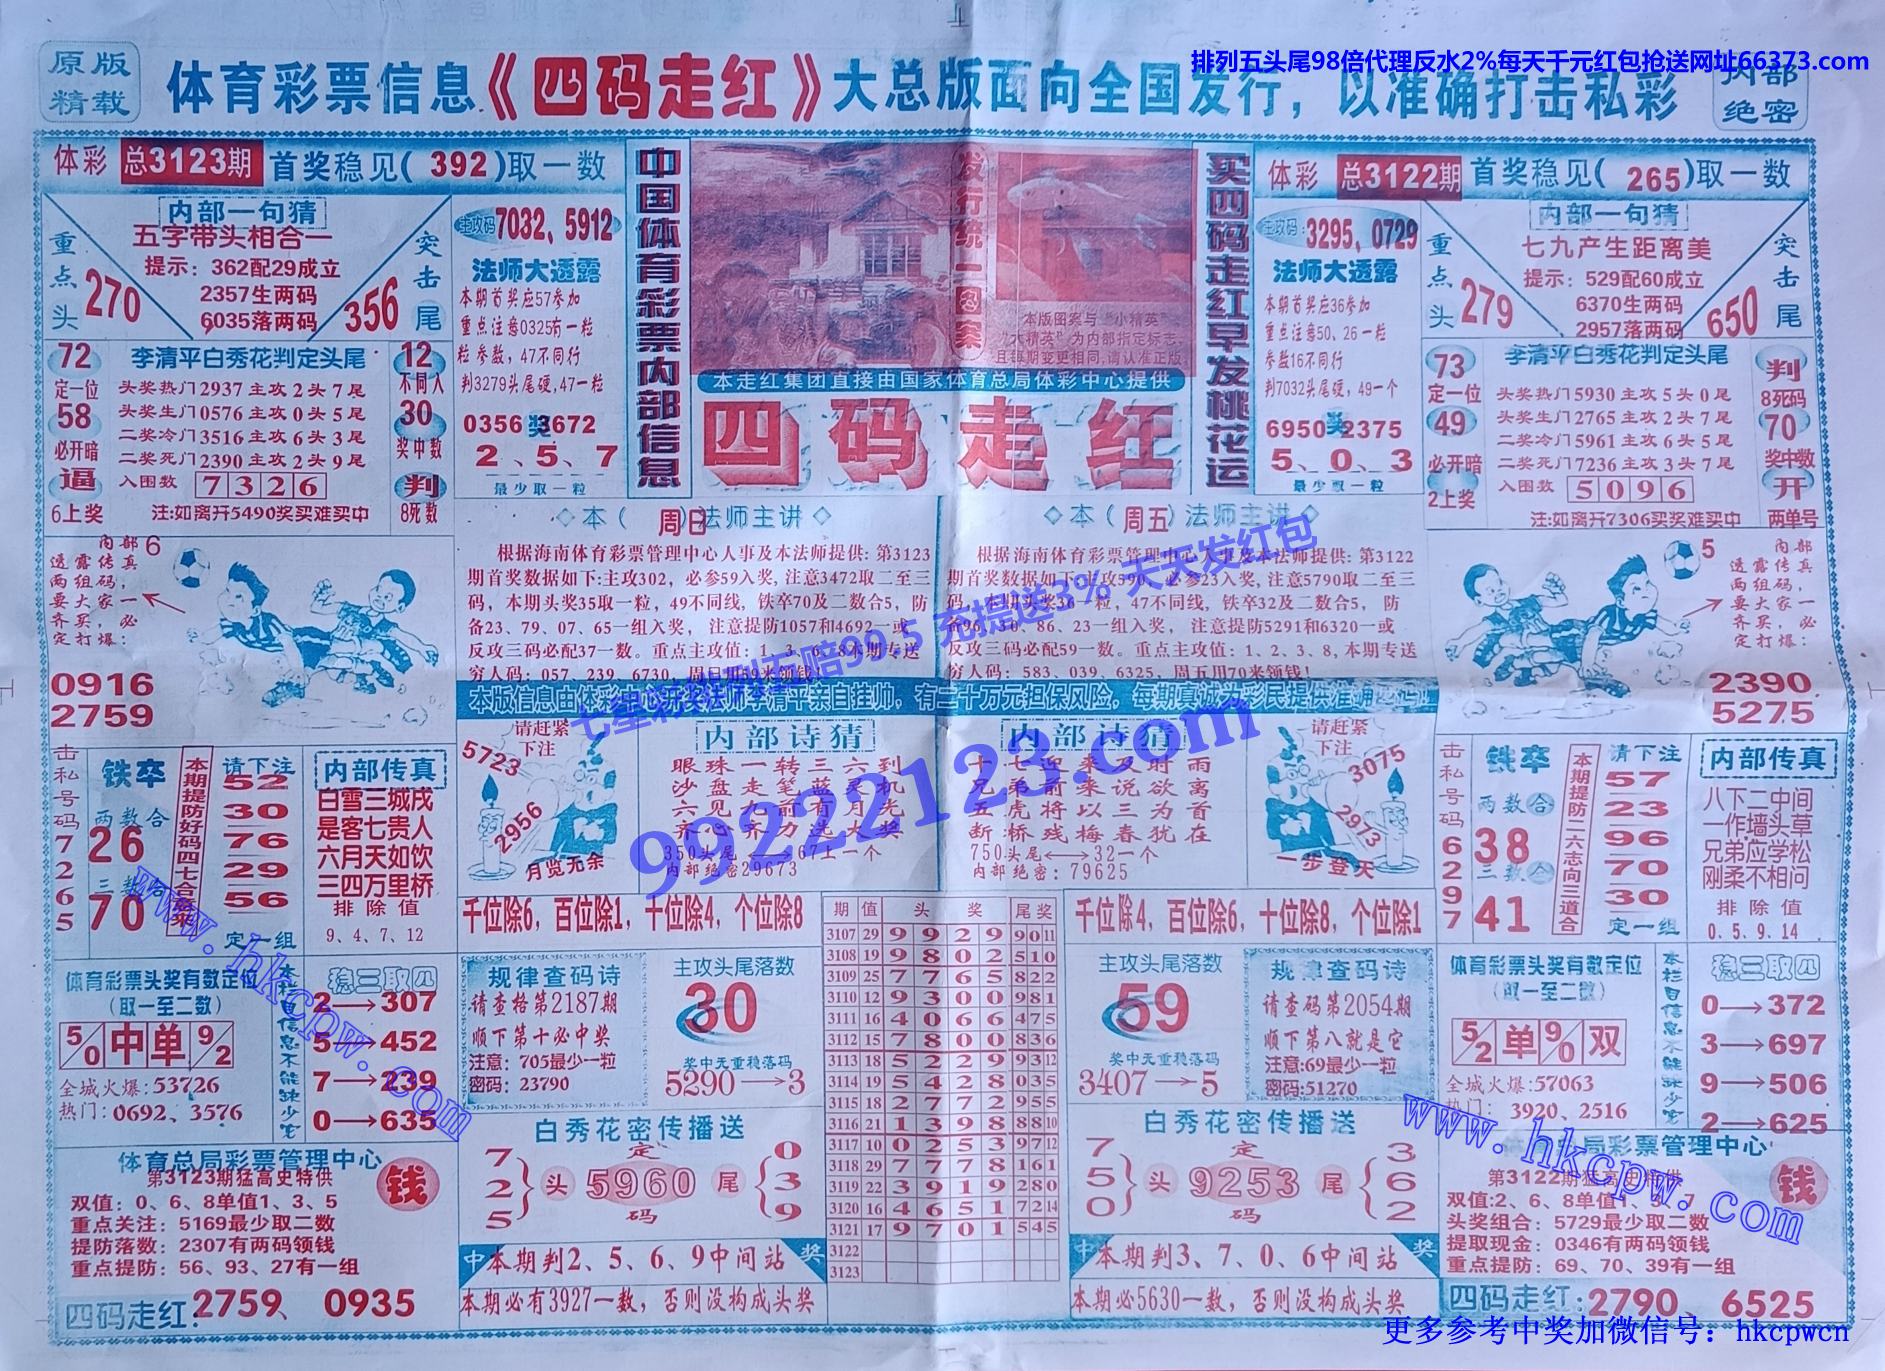 排列五头尾98倍代理反水2%每天千元红包抢送网址66373.com
原版
精载
体育彩票信息《四码走红》大总版面向全国发行，以准确打击私彩
内部
绝密
体彩 总3123期 首奖稳见(392)取一数
内部一句猜
五字带头相合一
提示：362配29成立
2357生两码
6035落两码
重点头
270
突击尾
356
主攻码 7032、5912
法师大透露
本期首奖应57参加
重点注意0325有一粒
粒参数，47不同行
判3279头尾硬，47一粒
0356奖3672
2、5、7
最少取一粒
72
定一位
58
必开暗
逼
6上奖
李清平白秀花判定头尾
头奖热门2937主攻2头7尾
头奖生门0576主攻0头5尾
二奖冷门3516主攻6头3尾
二奖死门2390主攻2头9尾
入围数 7326
注:如离开5490奖买难买中
12
不同人
30
奖中数
判
8死数
中国体育彩票内部信息
发行统一图案
本版图案与“小精英”
“大精英”为内部指定标志
且每期变更相同,请认准正版
本走红集团直接由国家体育总局体彩中心提供
四码走红
买四码走红早发桃花运
体彩 总3122期 首奖稳见(265)取一数
主攻码：3295、0729
法师大透露
本期首奖应36参加
重点注意50、26一粒
参数16不同行
判7032头尾硬，49一个
6950奖2375
5、0、3
最少取一粒
内部一句猜
七九产生距离美
提示：529配60成立
6370生两码
2957落两码
重点头
279
突击尾
650
73
定一位
49
必开暗
2上奖
李清平白秀花判定头尾
头奖热门5930主攻5头0尾
头奖生门2765主攻2头7尾
二奖冷门5961主攻6头5尾
二奖死门7236主攻3头7尾
入围数 5096
注:如离开7306买奖难买中
判
8死码
70
奖中数
开
两单号
内部6
透露传真
两组码，
要大家一
齐买，必
定打爆：
0916
2759
◇本(周日)法师主讲◇
根据海南体育彩票管理中心人事及本法师提供：第3123
期首奖数据如下:主攻302，必参59入奖,注意3472取二至三
码，本期头奖35取一粒，49不同线，铁卒70及二数合5，防
备23、79、07、65一组入奖， 注意提防1057和4692一或
反攻三码必配37一数。重点主攻值：1、3、6、8本期专送
穷人码：057、239、6730，周日用59来领钱！
◇本(周五)法师主讲◇
根据海南体育彩票管理中心人事及本法师提供：第3122
期首奖数据如下:主攻590，必参23入奖,注意5790取二至三
码，本期头奖36一粒，47不同线，铁卒32及二数合5， 防
备96、30、86、23一组入奖， 注意提防5291和6320一或
反攻三码必配59一数。重点主攻值：1、2、3、8,本期专送
穷人码：583、039、6325，周五用70来领钱！
5 内部
透露传真
两组码，
要大家一
齐买，必
定打爆：
2390
5275
七星彩排列五赔99.5 充提送3% 天天发红包
99222123.com
本版信息由体彩中心开奖法师李清平亲自挂帅，有二十万元担保风险，每期真诚为彩民提供准确四码！
击私号码72655
铁卒
两数合
26
三数合
70
本期提防好码四七合
请下注
52
30
76
29
56
定一组
内部传真
白雪三城戌
是客七贵人
六月天如饮
三四万里桥
排除值
9、4、7、12
请赶紧
下注
5723
2956
月览无余
内部诗猜
眼珠一转三六到
沙盘走笔蓝灵机
六见九前有月光
齐心齐力选大奖
350头尾⟷67上一个
内部绝密29673
内部诗猜
十七迎来及时雨
兄弟前来说欲离
五虎将以三为首
断桥残梅春犹在
750头尾⟷32一个
内部绝密：79625
请赶紧
下注
3075
2973
一步登天
击私号码66297
铁卒
两数合
38
三数合
41
本期提防二六志向三道合
请下注
57
23
96
70
30
定一组
内部传真
八下二中间
一作墙头草
兄弟应学松
刚柔不相问
排除值
0.5.9.14
千位除6，百位除1，十位除4，个位除8
期 值 头 奖 尾奖
3107 29 9 9 2 9 90 11
3108 19 9 8 0 2 510
3109 25 7 7 6 5 822
3110 12 9 3 0 0 981
3111 16 4 0 6 6 475
3112 15 7 8 0 0 836
3113 18 5 2 2 9 93 12
3114 19 5 4 2 8 035
3115 18 2 7 7 2 955
3116 21 1 3 9 8 88 10
3117 10 0 2 5 3 97 12
3118 29 7 7 7 8 161
3119 22 3 9 1 9 280
3120 16 4 6 5 1 72 14
3121 17 9 7 0 1 545
3122
3123
千位除4，百位除6，十位除8，个位除1
体育彩票头奖有数定位
(取一至二数)
5/0 中 单 9/2
全城火爆:53726
热门：0692、3576
本栏目信息不能缺少它
稳三取四
2→307
5→452
7→239
0→635
规律查码诗
请查格第2187期
顺下第十必中奖
注意：705最少一粒
密码：23790
主攻头尾落数
30
奖中无重稳落码
5290→3
主攻头尾落数
59
奖中无重稳落码
3407→5
规律查码诗
请查码第2054期
顺下第八就是它
注意:69最少一粒
密码:51270
体育彩票头奖有数定位
(取一至二数)
5/2 单 9/0 双
全城火爆:57063
热门： 3920、2516
本栏目信息不能缺少它
稳三取四
0→372
3→697
9→506
2→625
体育总局彩票管理中心
第3123期猛高史特供
双值：0、6、8单值1、3、5
重点关注：5169最少取二数
提防落数：2307有两码领钱
重点提防：56、93、27有一组
钱
四码走红:2759、0935
白秀花密传播送
7
2
5
头
定
5960
码
尾
0
3
9
中 本期判2、5、6、9中间站 奖
本期必有3927一数，否则没构成头奖
白秀花密传播送
7
5
0
头
定
9253
码
尾
3
6
2
中 本期判3、7、0、6中间站 奖
本期必5630一数，否则没构成头奖
体育总局彩票管理中心
第3122期猛高史特供
双值:2、6、8单值1、5、7
头奖组合：5729最少取二数
提取现金：0346有两码领钱
重点提防：69、70、39有一组
钱
四码走红:2790、6525
www.hkcpw.com
www.hkcpw.com
更多参考中奖加微信号：hkcpwcn